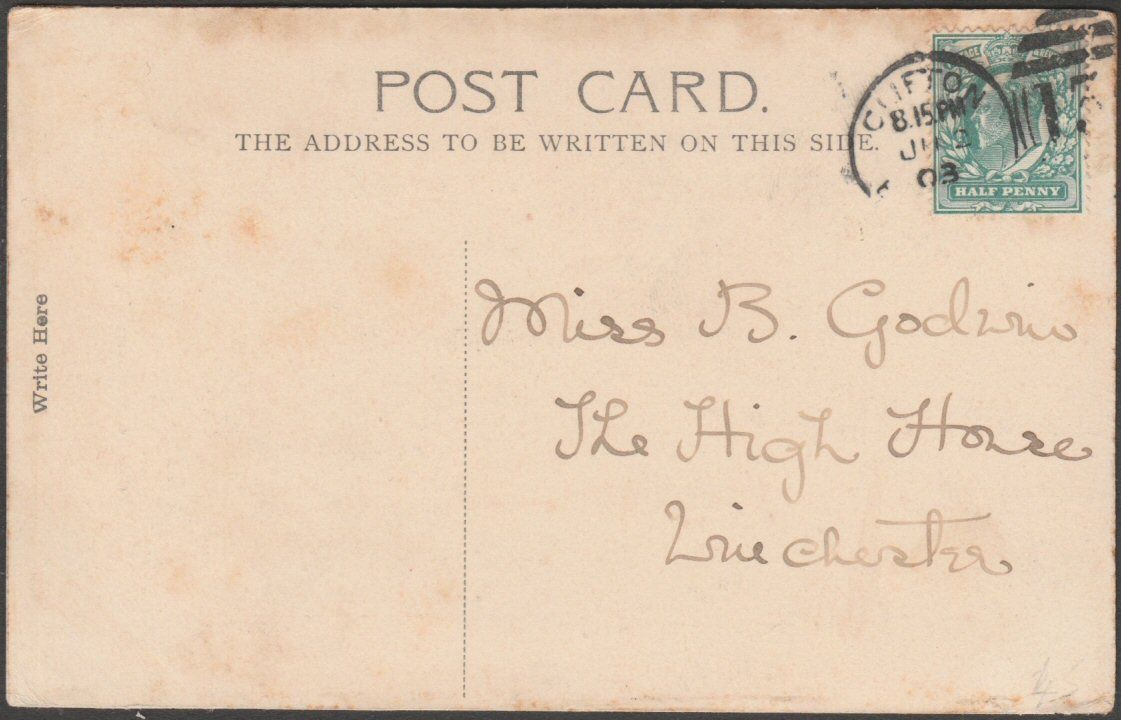 POST CARD.
THE ADDRESS TO BE WRITTEN ON THIS SIDE.
CLIFTON
8.15 PM
2
03
HALF PENNY
Write Here
Miss B. Godwin
The High House
Winchester